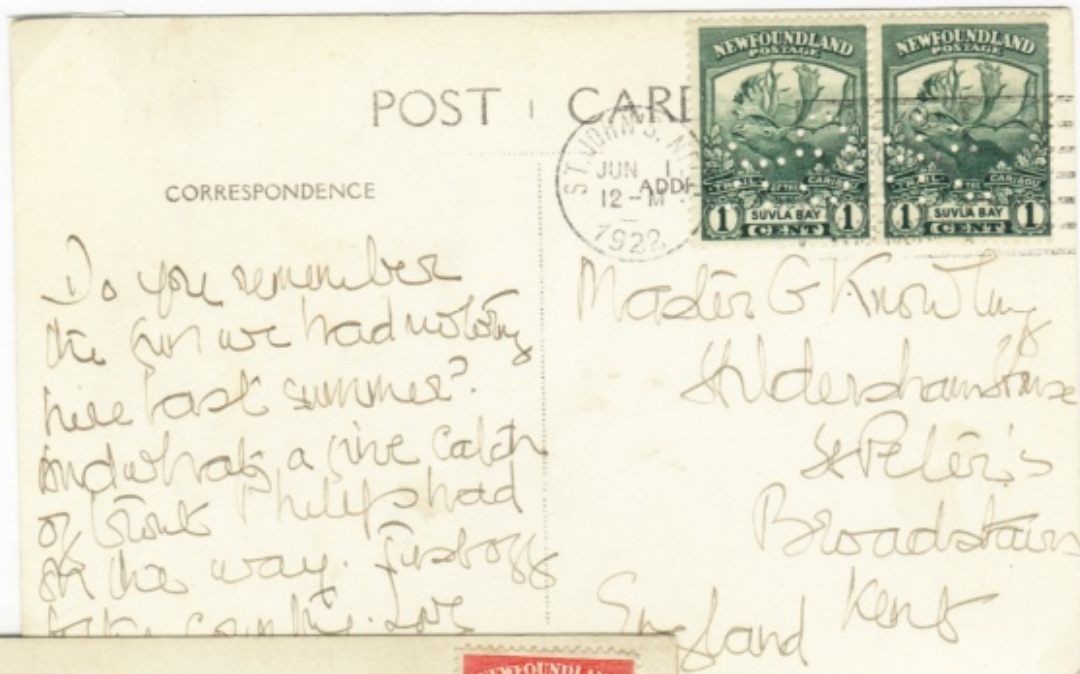 POST CARD
CORRESPONDENCE
ADDRE
ST. JOHN'S, N
JUN 1
12 - M
1922
NEWFOUNDLAND
POSTAGE
SUVLA BAY
1 CENT 1
NEWFOUNDLAND
POSTAGE
CARIBOU
SUVLA BAY
1 CENT 1
Do you remember
the fun we had motoring
here last summer?
And what a fine catch
of trout Philip had
on the way. Just off
to the country. Love
Master G Knowling
Hildersham House
St Peter's
Broadstairs
Kent
England
NEWFOUNDLAND